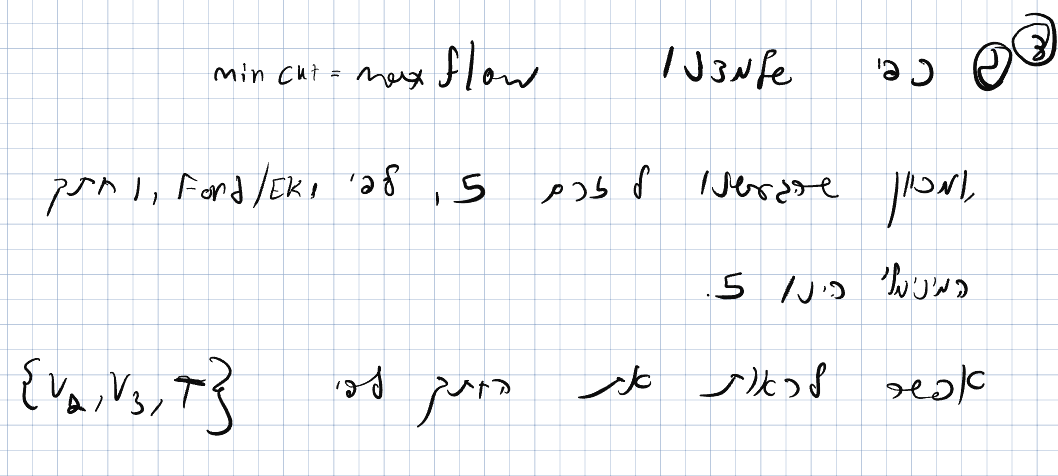 ③ ② כפי שלמדנו min cut = max flow
ומכיוון שהגענו לזרם 5, לפי Ford/EK, החתך
המינימלי הינו 5.
אפשר לראות את החתך לפי {V2, V3, T}